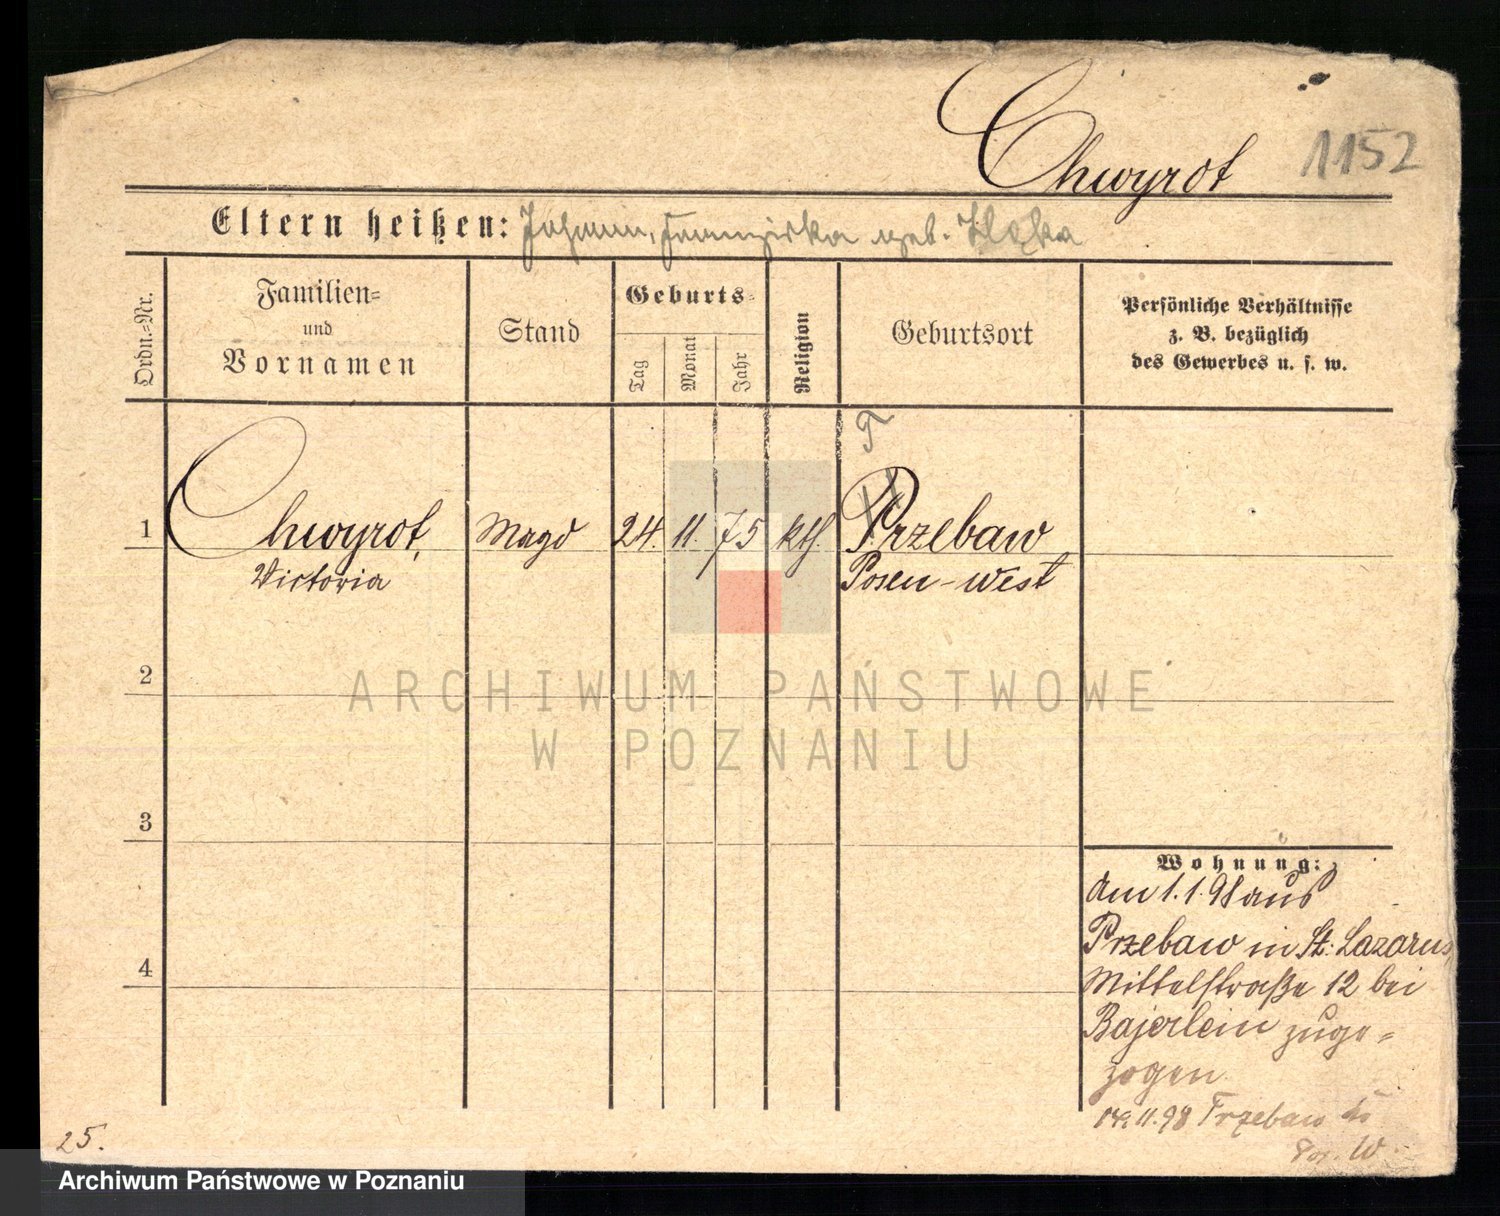 Chwyrot 1152
Eltern heißen: Johann, Franziska geb.
Ordn.-Nr.
Familien-
und
Vornamen
Stand
Geburts-
Tag
Monat
Jahr
Religion
Geburtsort
Persönliche Verhältnisse
z. B. bezüglich
des Gewerbes u. s. w.
1 Chwyrot, Magd 24. 11. 75 kth. Przebaw
Victoria Posen-West
2
ARCHIWUM PAŃSTWOWE
W POZNANIU
3
Wohnung:
Am 1.1.98 aus
Przebaw in St. Lazarus,
4
Mittelstraße 12 bei
Bajerlein zuge=
zogen
11.98 Przebaw
Pos. W.
25.
Archiwum Państwowe w Poznaniu